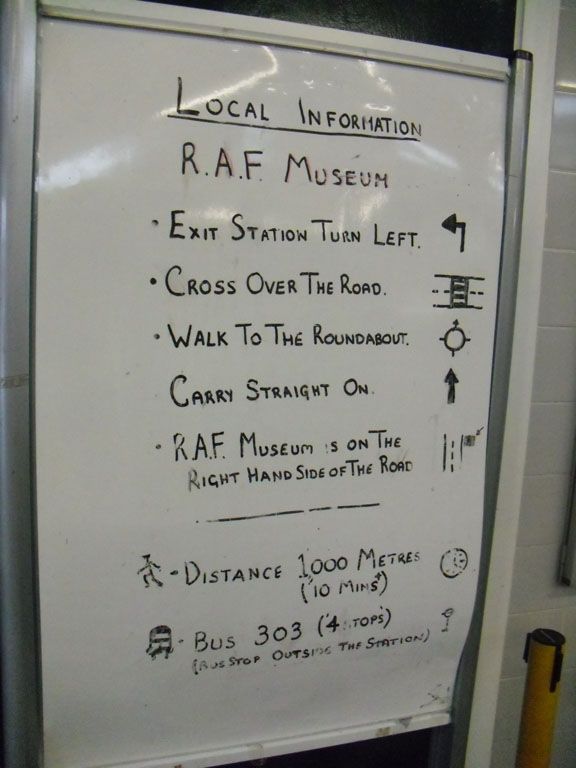 LOCAL INFORMATION
R.A.F. MUSEUM
· EXIT STATION TURN LEFT.
· CROSS OVER THE ROAD.
· WALK TO THE ROUNDABOUT.
CARRY STRAIGHT ON.
· R.A.F. MUSEUM IS ON THE
RIGHT HAND SIDE OF THE ROAD
- DISTANCE 1000 METRES
('10 MINS')
- BUS 303 ('4 STOPS')
(BUS STOP OUTSIDE THE STATION)